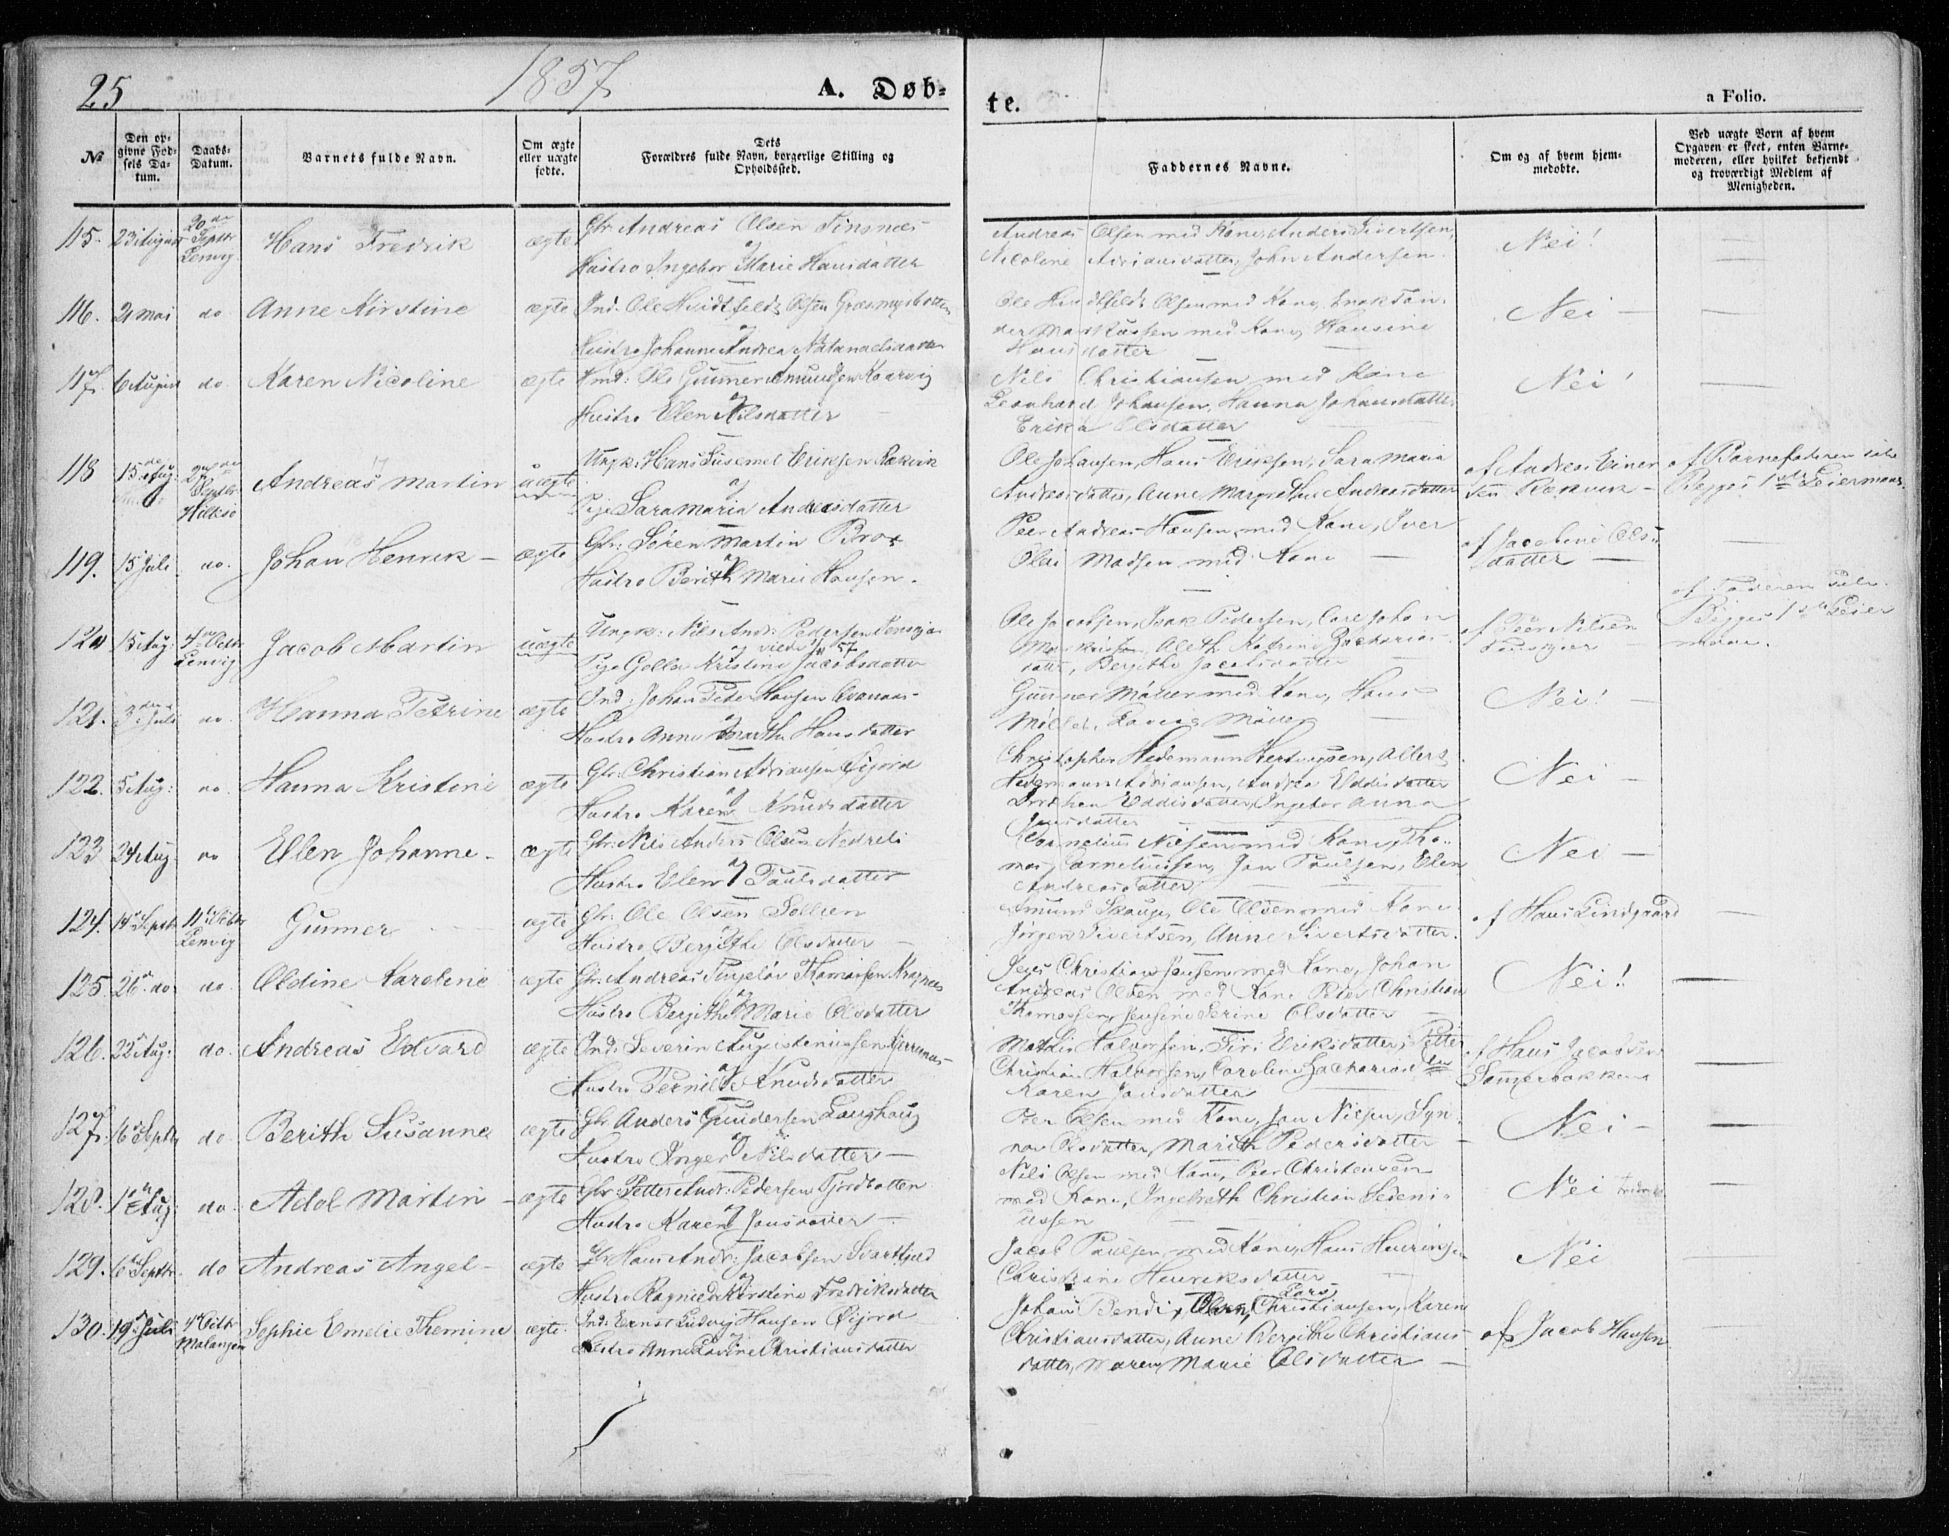 25
1857
A. Døb-
te.
a Folio.
No
Den op-
givne Fød-
sels Da-
tum.
Daabs-
Datum.
Barnets fulde Navn.
Om ægte
eller uægte
fødte.
Dets
Forældres fulde Navn, borgerlige Stilling og
Opholdssted.
Faddernes Navne.
Om og af hvem hjem-
medøbte.
Ved uægte Børn af hvem
Opgaven er skeet, enten Barne-
moderen, eller hvilket bekjendt
og troværdigt Medlem af
Menigheden.
115. 23 August 20de Septbr Lenvig Hans Fredrik ægte
Gbr. Andreas Olsen Finsnæs
og
Hustro Ingebor Marie Hansdatter
Andreas Olsen med Kone, Anders Sivertsen,
Nicoline Adriansdatter, John Andersen.
Nei!
116. 21 Mai do Anne Kirstine ægte
Ind. Ole Hvidtfeldt Olsen Græsmyrbotten
og
Hustro Johanne Andrea Natanaelsdatter
Ole Hvidtfeldt Olsen med Kone,
Markussen med Kone, Hansine
Hansdatter
Nei
117. 6 August do Karen Nicoline ægte
Gunner Amundsen Kaarvig
og
Hustro Elen Nilsdatter
Nils Christiansen med Kone
Leonhard Johansen, Hanna Johansdatter
Erika Olsdatter
Nei!
118 15de Aug: 27de Septbr Hillesø Andreas Martin uægte
Ungk: Hans Eriksen Rækvik
og
Pige Sara Maria Andreasdatter
Ole Johansen, Hans Eriksen, Sara Maria
Andreasdatter, Anne Margrethe Andreasdatter
af Andreas Einer
sen Rækvik
af Barnefaderen selv
Begges 1ste Leiermaal.
119. 15 Juli do. Johan Henrik ægte
Gbr: Søren Martin Brox
og
Hustro Berith Marie Hansen.
Peer Andreas Hansen med Kone, Iver
Olai Madsen med Kone
af Jacobine Ols-
datter
120 15 Aug: 4de Octbr Lenvig Jacob Martin uægte
Ungk: Nils Andr: Pedersen
og
Pige Kristine Jacobsdatter
Ole Jacobsen, Isak Pedersen, Carl Johan
Aleth Katrine Zacharias-
datter, Bergithe Jacobsdatter
af Peer Nilsen
af Faderen selv.
Begges 1ste Leier
maal.
121. 3 Juli do. Hanna Petrine ægte
Ind: Johan Peder Hansen
og
Hustro Anne Marthe Hansdatter
Gunner Møller med Kone, Hans
Møller, Møller
Nei!
122. 5 Aug: do. Hanna Kristine ægte
Gbr: Christian Adriansen Gijord
og
Hustro Karen Knudsdatter
Christopher Hedemann Hertugsen,
Hedemann Adriansen, Andrea Eddisdatter
Dorthea Eddisdatter, Ingebor Anna
Jensdatter
Nei
123 24 Aug do Ellen Johanne ægte
Gbr: Nils Anders Olsen Nedreli
og
Hustro Elen Paulsdatter
Cornelius Nielsen med Kone, Tho-
mas Corneliussen, Jon Paulsen, Elen
Andreasdatter
Nei
124. 14 Septbr 11 Octbr Lenvig Gunner ægte
Gbr: Ole Olsen Sollien
og
Hustro Bergithe Olsdatter
Amund Skauge, Ole Olsen med Kone
Jørgen Sivertsen, Anne Sivertsdatter.
af Hans Lindgaard
125. 26 do do. Oldine Karoline ægte
Gbr. Andreas Thomassen
og
Hustro Bergithe Marie Olsdatter
Jens Christian Jensen med Kone, Johan
Andreas Olsen med Kone Peter Christian
Thomassen, Jensine Serine Olsdatter
Nei!
126. 22 Aug: do. Andreas Edvard ægte
Ind: Severin Augustinussen
og
Hustro Pernille Knudsdatter
Mathis Halvorsen, Siri Eriksdatter, Petter
Christian Halvorsen, Caroline Zacharias
Karen Jonsdatter
af Hans Jacobsen
127. 6 Septbr do Berith Susanna ægte
Gbr Anders Gundersen Laughaug
og
Hustro Inger Nilsdatter
Peer Olsen med Kone, Jon Nielsen, Syn-
nov Olsdatter, Marith Pedersdatter
Nei
128. 1 Aug: do. Adol Martin ægte
Gbr: Petter Andr: Pedersen Fjordbotten
og
Hustro Karen Jonsdatter
Nils Olsen med Kone, Peer Christensen
med Kone, Ingebreth Christian
Nei
129. 6 Septbr. do Andreas Angel ægte
Gbr Hans Andr: Jacobsen Svartfjeld
og
Hustro Ragnild Kirstine Fredriksdatter
Jacob Paulsen med Kone, Hans Henriksen
Christine Henriksdatter
Nei
130. 19 Juli 4 Octbr Malangen Sophie Emelie Themine ægte.
Ind: Ernst Ludvig Hansen Gijord
og
Hustro Anne Christiansdatter
Johan Bendix Olsen, Lars Christiansen, Karen
Christiansdatter, Anne Bergithe Christians
datter, Maren Marie Olsdatter
af Jacob Hansen